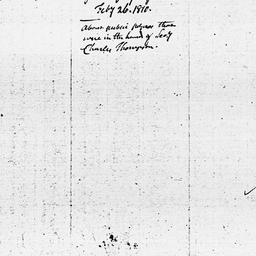 Feby 26. 1818.
About public papers that
were in the hands of Secy
Charles Thompson.